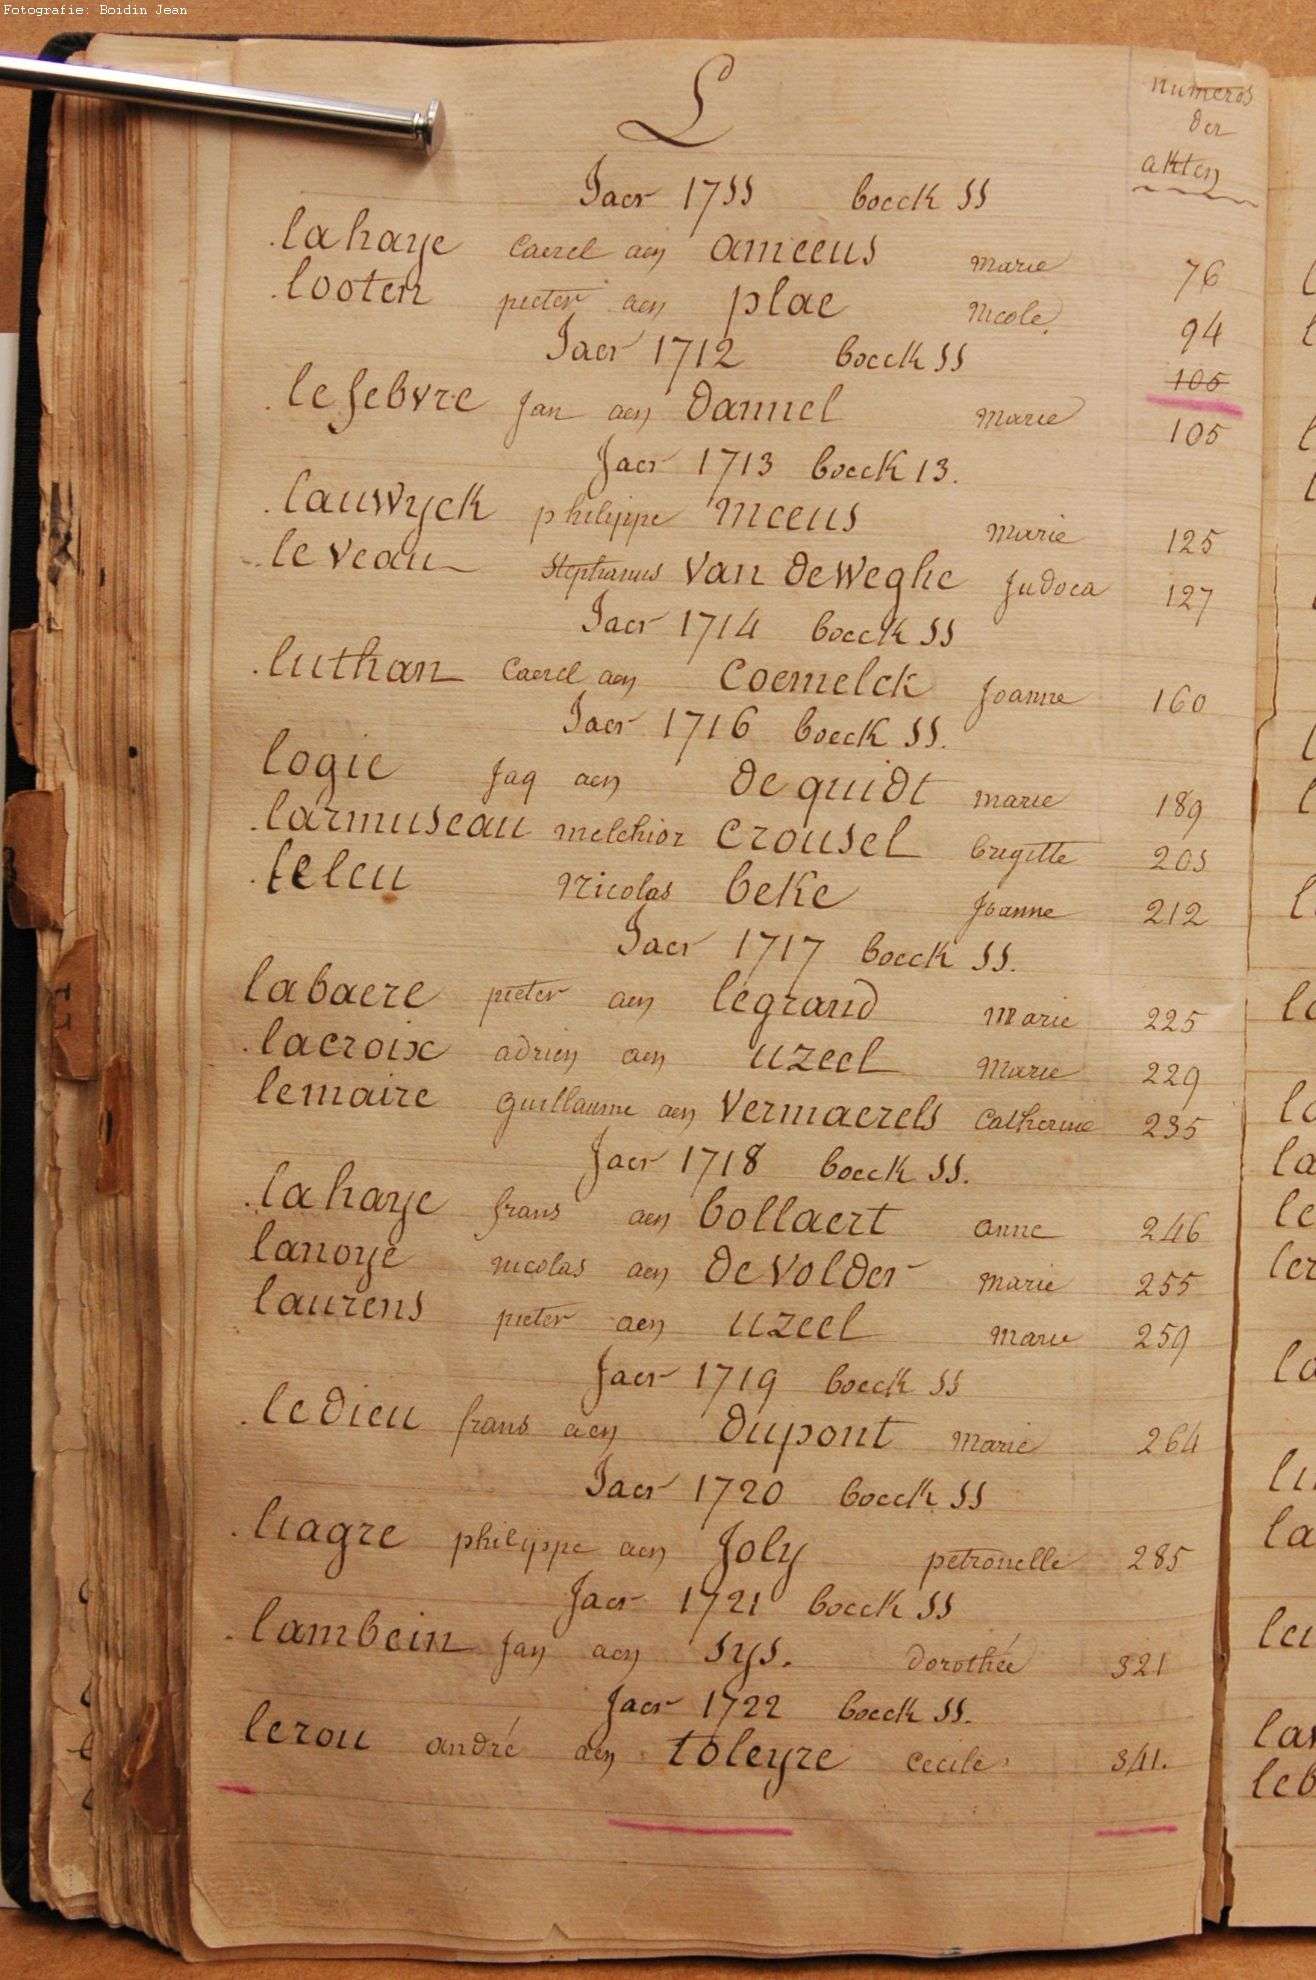 Fotografie: Boidin Jean
L
numeros
der
akten
Jaer 17SS boeck SS
lahaye Caerel aen ameeus marie 76
looten pieter aen plae Nicole 94
Jaer 1712 boeck SS
105
lefebvre Jan aen Danniel Marie 105
Jaer 1713 boeck 13.
lauwyck philippe Meeus Marie 125
le veau Stephanus Van De Weghe Judoca 127
Jaer 1714 boeck SS
luthan Caerel aen Coemelck Joanne 160
Jaer 1716 boeck SS.
logie Jaq aen De quidt marie 189
larmuseau melchior Crousel brigitte 205
leleu Nicolas beke Joanne 212
Jaer 1717 boeck SS.
labaere pieter aen legrand Marie 225
lacroix adrien aen uzeel Marie 229
lemaire guillaume aen Vermaerels Catherine 235
Jaer 1718 boeck SS.
lahaye frans aen bollaert anne 246
lanoye nicolas aen De Volder Marie 255
laurens pieter aen uzeel Marie 259
Jaer 1719 boeck SS
le Dieu frans aen Dupont Marie 264
Jaer 1720 boeck SS
liagre philippe aen Joly petronelle 285
Jaer 1721 boeck SS
lambein Jan aen Sys. Dorothée 321
Jaer 1722 boeck SS.
lerou andré aen toleyre Cecile 341.